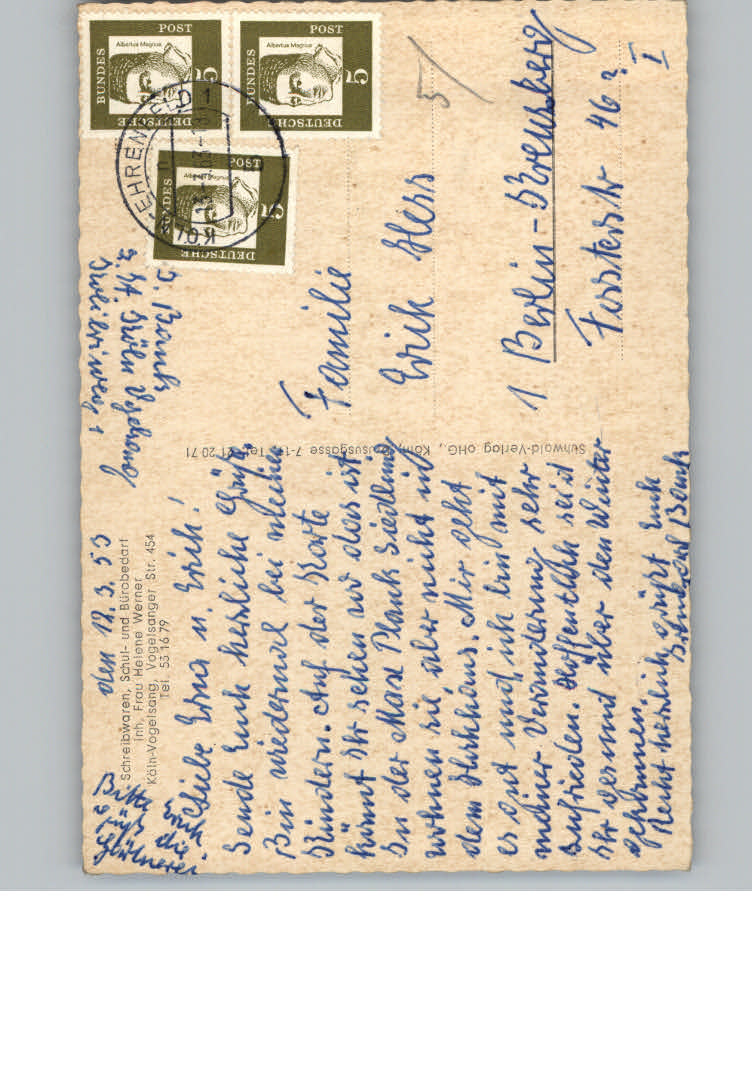 Schreibwaren, Schul- und Bürobedarf
Inh. Frau Helene Werner
Köln-Vogelsang, Vogelsanger Str. 454
Tel. 53 16 79
Liebe Erna u. Erich!
Sende Euch herzliche Grüße
Bin wiedermal bei meinen
Kindern. Auf der Karte
könnt Ihr sehen wo das ist
In der Max Plank Siedlung
wohnen sie, aber nicht in
dem Hochhaus. Mir geht
es gut und ich bin mit
meiner Veränderung sehr
zufrieden. Hoffentlich seid
Ihr gesund über den Winter
gekommen.
Recht herzlich grüßt Euch
Bitte
grüßt
Euch die
Gärtnerei
z. Zt. Köln Vogelsang
Familie
Erich Hess
1 Berlin-Kreuzberg
Forsterstr 46?
I
5
Stuhwald-Verlag oHG., Köln, Drususgasse 7-11, Tel. 21 20 71
DEUTSCHE BUNDES POST
Albertus Magnus
5
DEUTSCHE BUNDES POST
Albertus Magnus
5
DEUTSCHE BUNDES POST
Albertus Magnus
5
KÖLN-EHRENFELD 1